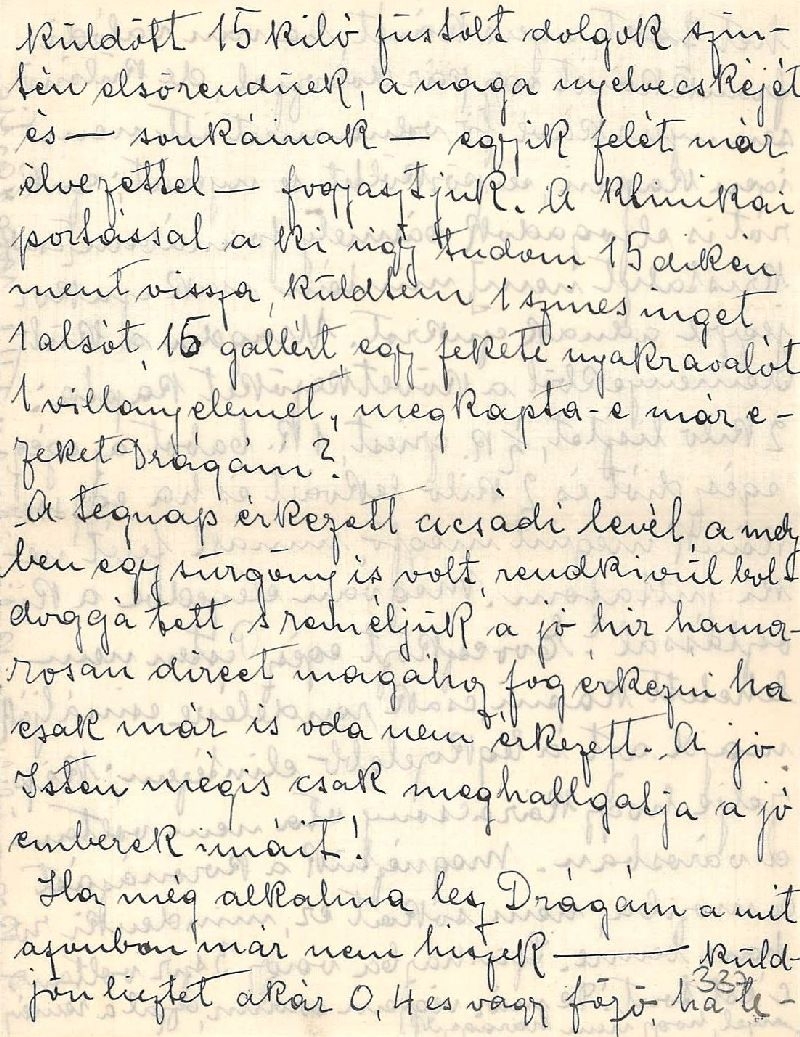 küldött 15 kiló füstölt dolgok szin-
tén elsőrendűek, a maga nyelvecskéjét
és — sonkáinak — egyik felét már
élvezettel — fogyasztjuk. A klinikai
portással a ki úgy tudom 15 dikén
ment vissza, küldtem 1 szines inget
1 alsót, 15 gallért egy fekete nyakravalót
1 villanyelemet, megkapta-e már e-
zeket Drágám?
A tegnap érkezett csádi levél, a mely
ben egy sürgöny is volt, rendkivül bol-
doggá tett, reméljük a jó hir hama-
rosan direct magához fog érkezni ha
csak már is oda nem érkezett. A jó
Isten mégis csak meghallgatja a jó
emberek imáit!
Ha még alkalma lesz Drágám a mit
azonban már nem hiszek — küld-
jön lisztet akár 0, 4 es vagy főző, ha te-
337